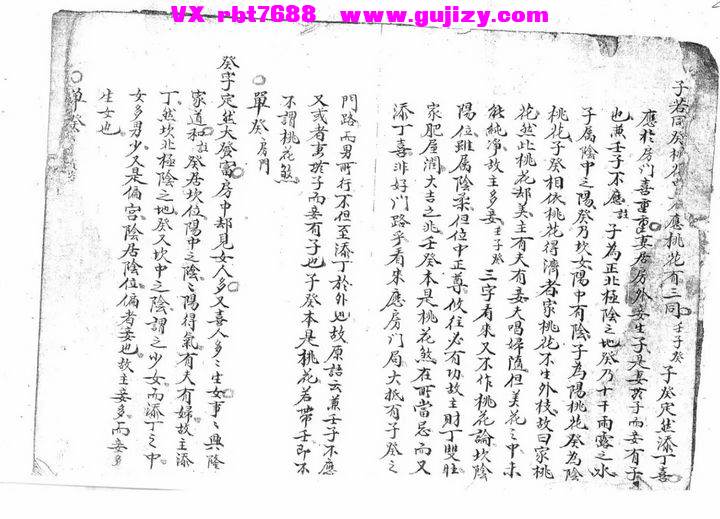 VX-rbt7688 www.gujizy.com
子若同癸桃 不應桃花有三同壬子癸 子癸定然添丁喜
應於房門喜重重莫居房外妾生子是妻 子而妾有子
也兼壬子不應註 子為正北極陰之地癸乃十干雨露之水
子屬陰中之陽癸乃坎女陽中有陰子為陽桃花癸為陰
桃花子癸相依桃花得濟者家桃花不生外枝故曰家桃
花然此桃花却美主有夫有妾夫唱婦隨但美花之中未
能純凈故主多妾壬子癸 三字看來又不作桃花論坎陰
陽位雖屬陰柔但位中正尊攸往必有功故主財丁雙旺
家肥屋潤大吉之兆壬癸本是桃花煞在所當忌而又
添丁喜非好門路乎看來應房門局大抵有子癸之
門路而男可行不但至添丁於外也故原語云兼壬子不應
又或者妻 子而妾有子也子癸本是桃花若帶壬即不
不謂桃花煞
單癸房門
癸字定然大發富房中却見女人多又喜人多多生女事事興隆
家道和註 癸居坎位陽中之陰陰陽得氣有夫有婦故主添
丁然坎北極陰之地癸又坎中之陰謂之少女而添丁之中
女多男少又是偏宫陰居陰位偏者妾也故主妾多而妾多
生女也
單癸